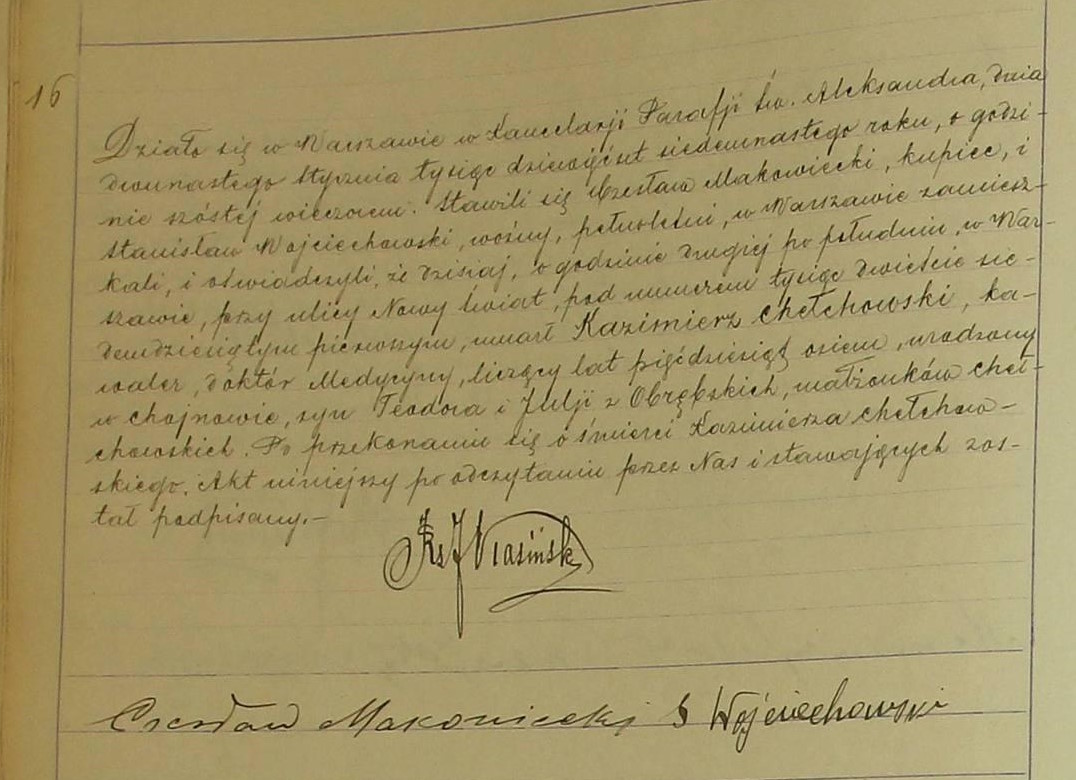 16
Działo się w Warszawie w Kancelarji Parafji Św. Aleksandra, dnia
dwunastego stycznia tysiąc dziewięćset siedemnastego roku, o godzi-
nie szóstej wieczorem. Stawili się Czesław Makowiecki, kupiec, i
Stanisław Wojciechowski, woźny, pełnoletni, w Warszawie zamiesz-
kali, i oświadczyli, że dzisiaj, o godzinie drugiej po południu, w War-
szawie, przy ulicy Nowy Świat, pod numerem tysiąc dwieście sie-
demdziesiątym pierwszym, umarł Kazimierz Chełchowski, ka-
waler, Doktór Medycyny, liczący lat pięćdziesiąt osiem, urodzony
w Chojnowie, syn Teodora i Julji z Obrębskich, małżonków Cheł-
chowskich. Po przekonaniu się o śmierci Kazimierza Chełchow-
skiego, Akt niniejszy po odczytaniu przez Nas i stawających zos-
tał podpisany.-
Ks J
Czesław Makowiecki S Wojciechowski